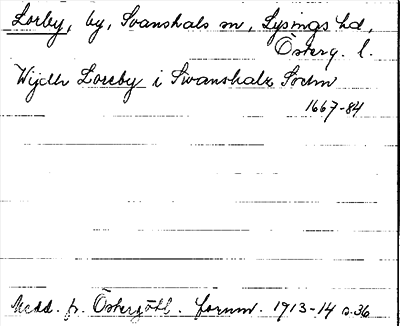 Lorby, by, Svanshals sn, Lysings hd,
Österg. l.
Wijdh Loreby i Swanshalz Sochn
1667-84
Medd. fr. Östergötl. fornm. 1913-14 s. 36